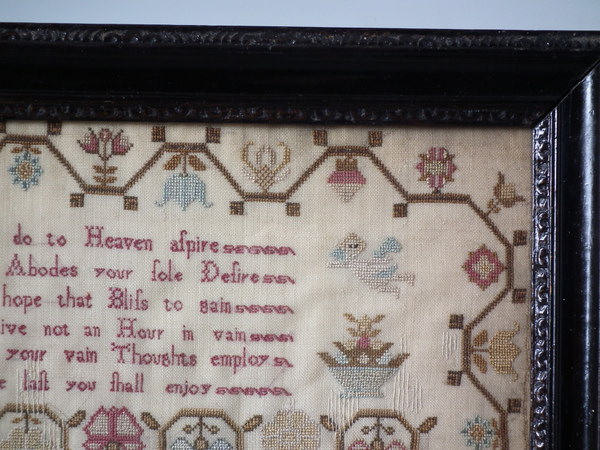 do to Heaven aſpire
Abodes your ſole Deſire
hope that Bliſs to gain
ive not an Hour in vain
your vain Thoughts employ
e laſt you ſhall enjoy